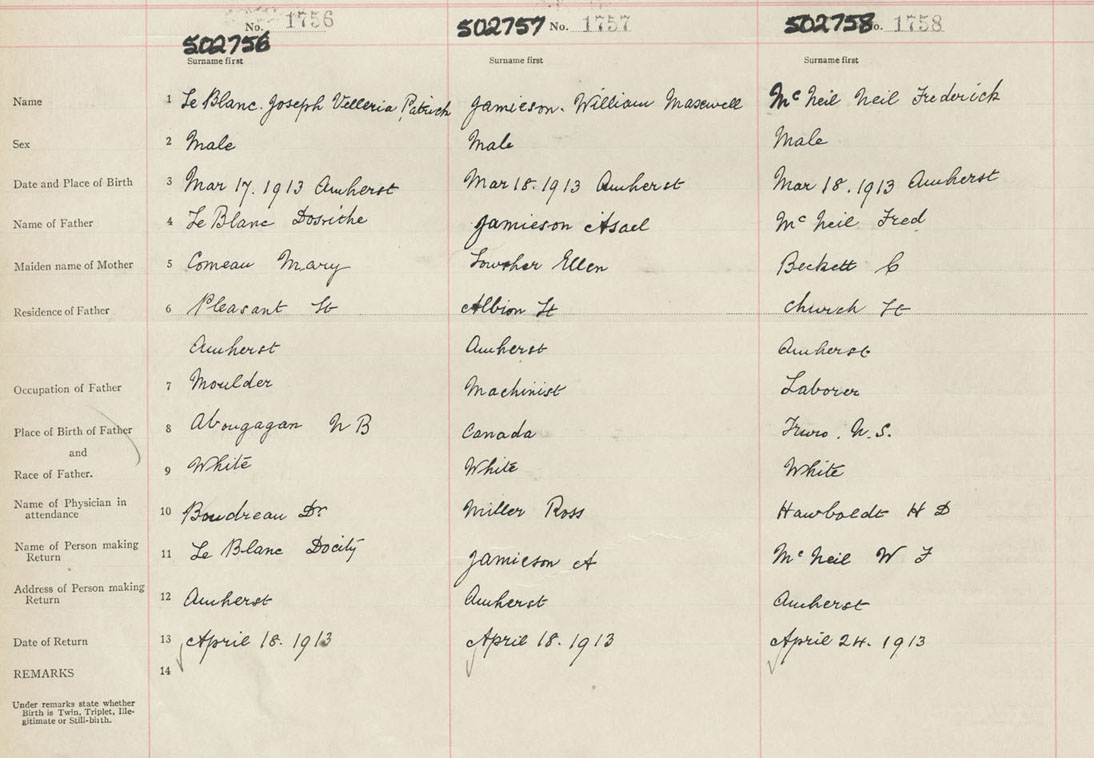 No. 1756 No. 1757 No. 1758
502756 502757 502758
Surname first Surname first Surname first
Name 1 Le Blanc. Joseph Velleria Patrick Jamieson. William Maxwell McNeil Neil Frederick
Sex 2 Male Male Male
Date and Place of Birth 3 Mar 17. 1913 Amherst Mar 18. 1913 Amherst Mar 18. 1913 Amherst
Name of Father 4 Le Blanc Dosithe Jamieson Asael McNeil Fred
Maiden name of Mother 5 Comeau Mary Lowther Ellen Beckett C
Residence of Father 6 Pleasant St Albion St Church St
Amherst Amherst Amherst
Occupation of Father 7 Moulder Machinist Laborer
Place of Birth of Father 8 Abougagan N B Canada Truro. N.S.
and
Race of Father. 9 White White White
Name of Physician in attendance 10 Boudreau Dr Miller Ross Hawboldt H D
Name of Person making Return 11 Le Blanc Docity Jamieson A McNeil W F
Address of Person making Return 12 Amherst Amherst Amherst
Date of Return 13 April 18. 1913 April 18. 1913 April 24. 1913
REMARKS 14
Under remarks state whether
Birth is Twin, Triplet, Ille-
gitimate or Still-birth.